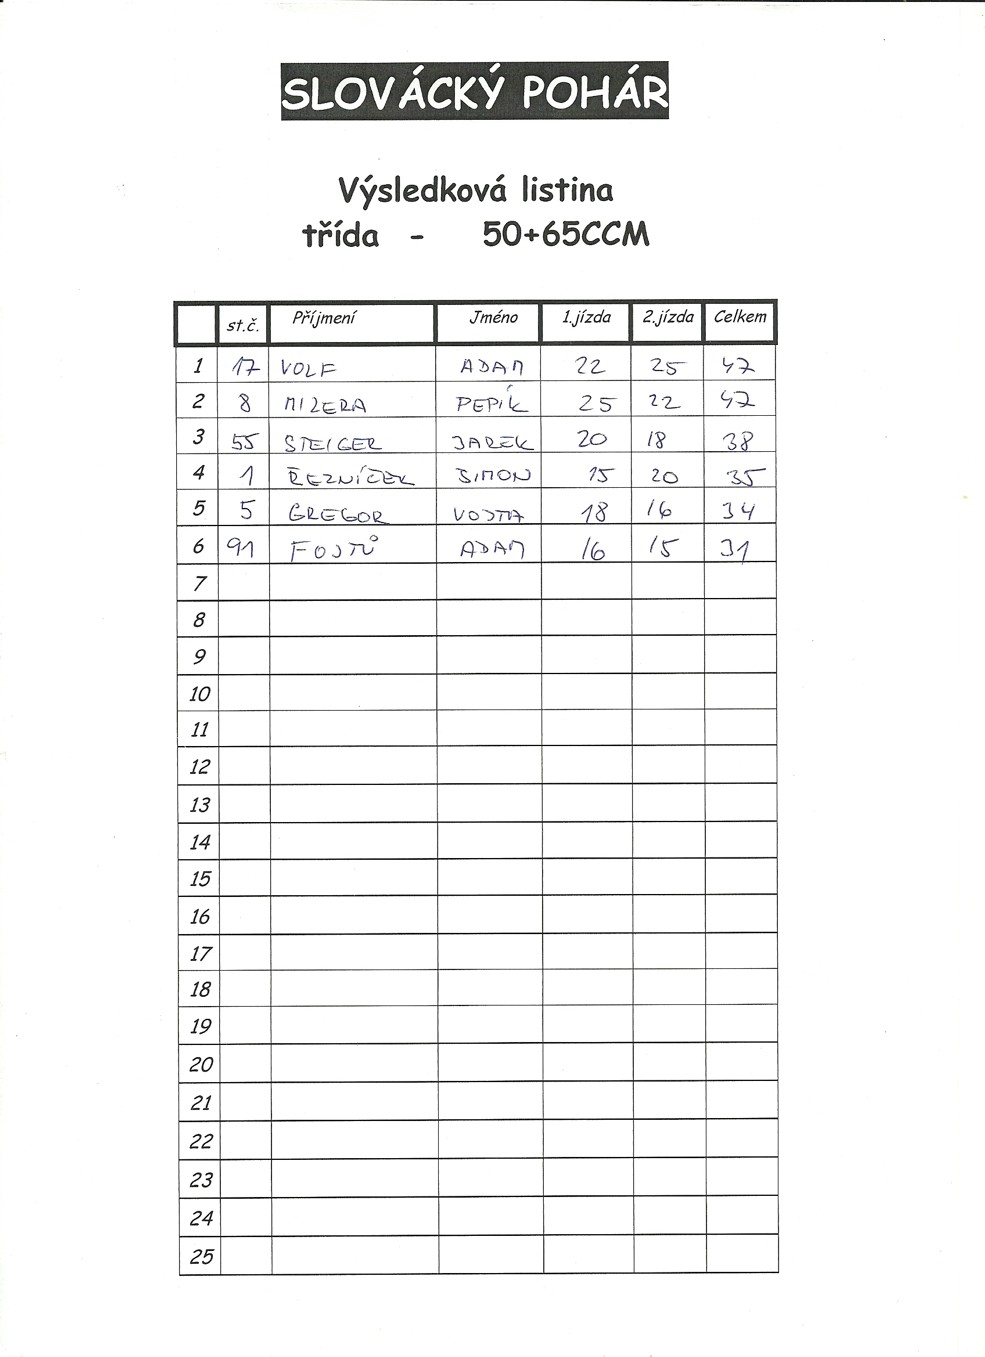 SLOVÁCKÝ POHÁR
Výsledková listina
třída - 50+65CCM
st.č. Příjmení Jméno 1.jízda 2.jízda Celkem
1 17 VOLF ADAM 22 25 47
2 8 MIZERA PEPÍK 25 22 47
3 55 STEIGER JAREK 20 18 38
4 1 ŘEZNÍČEK SIMON 15 20 35
5 5 GREGOR VOJTA 18 16 34
6 91 FOJTŮ ADAM 16 15 31
7
8
9
10
11
12
13
14
15
16
17
18
19
20
21
22
23
24
25